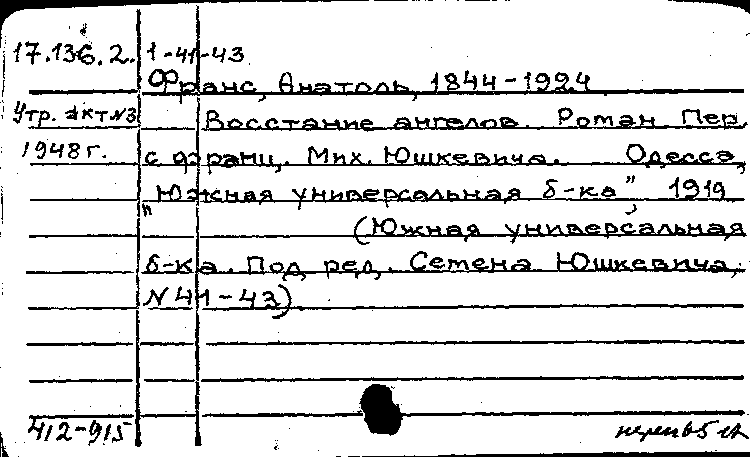 17.136.2. 1-41-43
Франс, Анатоль, 1844-1924
Утр. акт №3 Восстание ангелов. Роман Пер.
1948г. с франц. Мих. Юшкевича. Одесса,
"Южная универсальная б-ка", 1919
(Южная универсальная
б-ка. Под ред. Семена Юшкевича,
N 41-43).
412-915